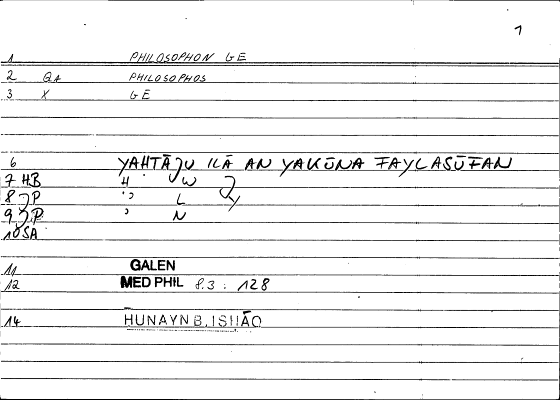 1
1 PHILOSOPHON GE
2 QA PHILOSOPHOS
3 X GE
6 YAHTĀJU ILĀ AN YAKŪNA FAYLASŪFAN
7 HB H W J
8 JP ʾ L Y
9 JP ʾ N
10 SA
11 GALEN
12 MED PHIL 8.3 : 128
14 HUNAYN B. ISHĀQ